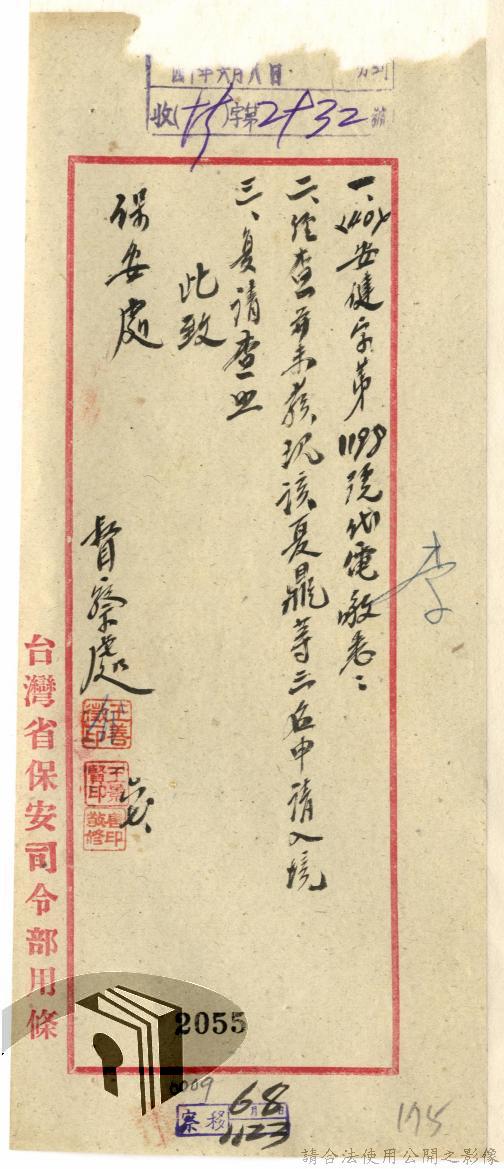 四十年六月八日
收(  )字第2432號
一、(40)安健字第1199號代電敬悉：
二、經查並未發現該夏鼎等三名申請入境
三、复請查照
此致
保安處
督察處
六、七
李
台灣省保安司令部用條
2055
0009
移
案
68
1123
175
請合法使用公開之影像